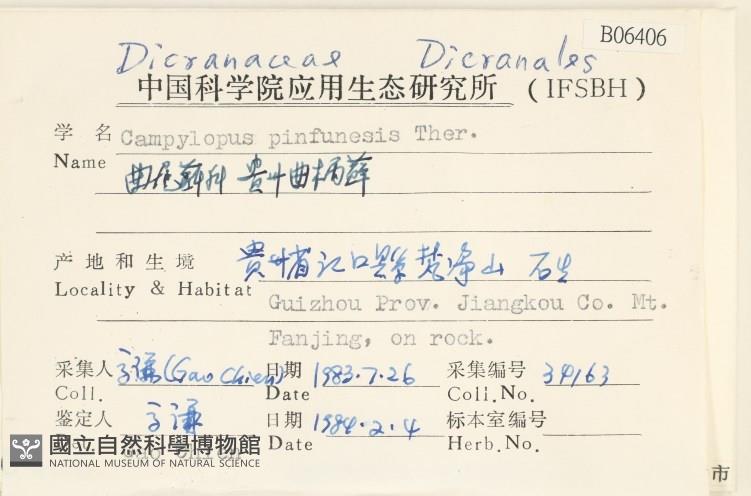 B06406
Dicranaceae Dicranales
中国科学院应用生态研究所 (IFSBH)
学 名 Campylopus pinfunesis Ther.
Name
曲尾藓科 貴州曲柄藓
产 地 和 生 境 貴州省江口縣梵净山 石生
Locality & Habitat Guizhou Prov. Jiangkou Co. Mt.
Fanjing, on rock.
采集人 高谦(Gao Chien) 日期 1983.7.26 采集编号 34163
Coll. Date Coll.No.
鉴定人 高谦 日期 1984.2.4 标本室编号
Date Herb.No.
國立自然科學博物館
NATIONAL MUSEUM OF NATURAL SCIENCE
市